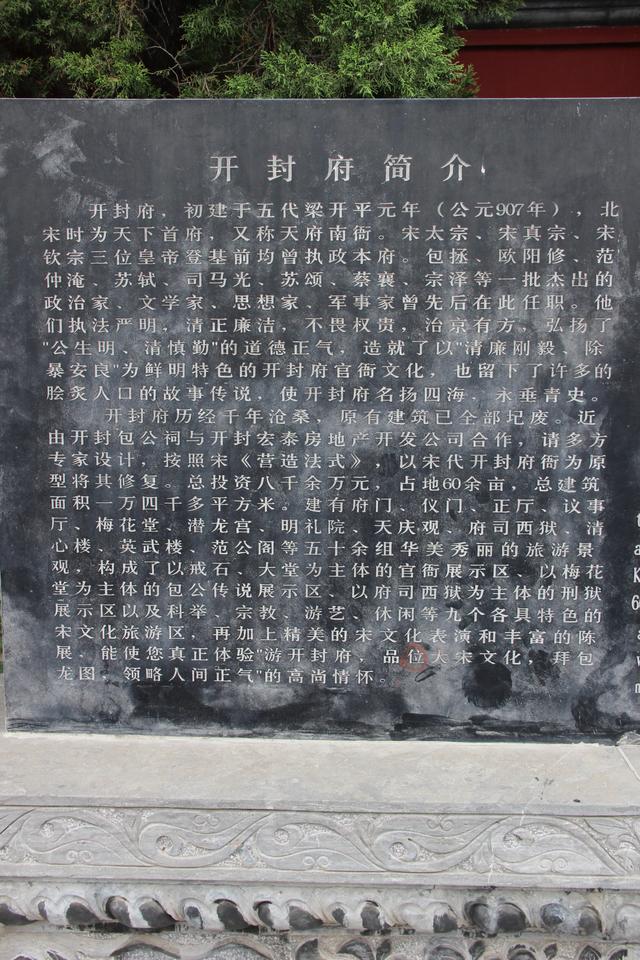 开封府简介
开封府，初建于五代梁开平元年（公元907年），北
宋时为天下首府，又称天府南衙。宋太宗、宋真宗、宋
钦宗三位皇帝登基前均曾执政本府。包拯、欧阳修、范
仲淹、苏轼、司马光、苏颂、蔡襄、宗泽等一批杰出的
政治家、文学家、思想家、军事家曾先后在此任职。他
们执法严明，清正廉洁，不畏权贵，治京有方，弘扬了
"公生明、清慎勤"的道德正气，造就了以"清廉刚毅、除
暴安良"为鲜明特色的开封府官衙文化，也留下了许多的
脍炙人口的故事传说，使开封府名扬四海，永垂青史。
开封府历经千年沧桑，原有建筑已全部圮废。近
由开封包公祠与开封宏泰房地产开发公司合作，请多方
专家设计，按照宋《营造法式》，以宋代开封府衙为原
型将其修复。总投资八千余万元，占地60余亩，总建筑
面积一万四千多平方米。建有府门、仪门、正厅、议事
厅、梅花堂、潜龙宫、明礼院、天庆观、府司西狱、清
心楼、英武楼、范公阁等五十余组华美秀丽的旅游景
观，构成了以戒石、大堂为主体的官衙展示区、以梅花
堂为主体的包公传说展示区、以府司西狱为主体的刑狱
展示区以及科举、宗教、游艺、休闲等九个各具特色的
宋文化旅游区，再加上精美的宋文化表演和丰富的陈
展，能使您真正体验"游开封府，品位大宋文化，拜包
龙图，领略人间正气"的高尚情怀。